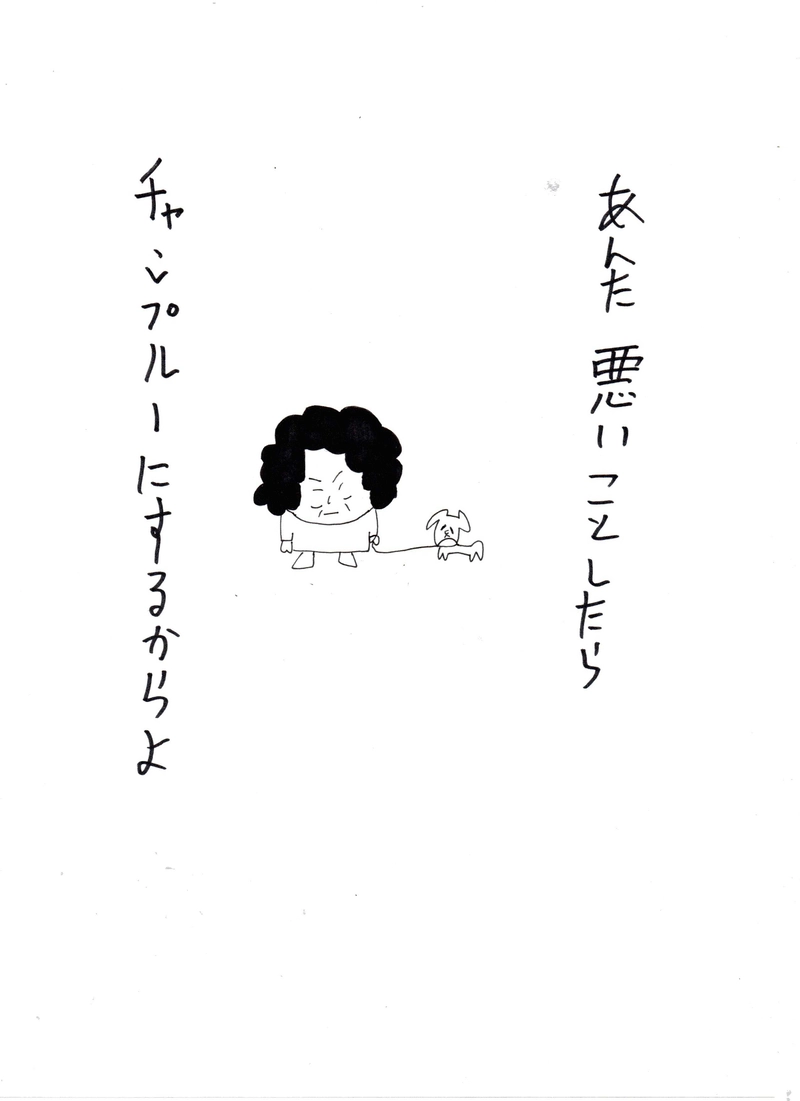 あんた 悪いことしたら
チャンプルーにするからよ